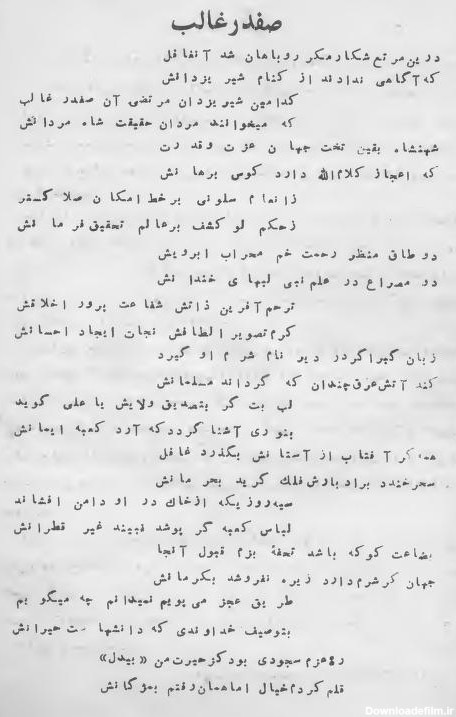 صفدر غالب
درین مرتع شکار مکر روباهان شد آنغافل
که آگاهی ندادند از کنام شیر یزدانش
کدامین شیر یزدان مرتضی آن صفدر غالب
که میخوانند مردان حقیقت شاه مردانش
شهنشاه یقین تخت جهان عزت و قدرت
که اعجاز کلام‌الله دارد کوس برهانش
ز انعام سلونی بر خط امکان صلا گستر
ز حکم لو کشف بر عالم تحقیق فرمانش
دو طاق منظر رحمت خم محراب ابرویش
دو مصراع در علم نبی لبهای خندانش
ترحم آفرین ذاتش شفاعت پرور اخلاقش
کرم تصویر الطافش نجات ایجاد احسانش
زبان گبر اگر در دیر نام شرم او گیرد
کند آتش عرق چندان که گرداند مسلمانش
لب بت گر بتصدیق ولایش یا علی گوید
بنوری آشنا گردد که آرد کعبه ایمانش
همه گر آفتاب از آستانش بگذرد غافل
سحر خندد برادبارش فلک گرید بحرمانش
سیه روزیکه از خاک در او دامن افشاند
لباس کعبه گر پوشد نبیند غیر قطرانش
بضاعت کو که باشد تحفهٔ بزم قبول آنجا
جهان گر شرم دارد زیره نفروشد بکرمانش
طریق عجز می پویم نمیدانم چه میگویم
بتوصیف خداوندی که دانشهاست حیرانش
ره عزم سجودی بود کز حیرت من «بیدل»
قلم کردم خیال اما همان رفتم بمژگانش
Downloadefilm.ir